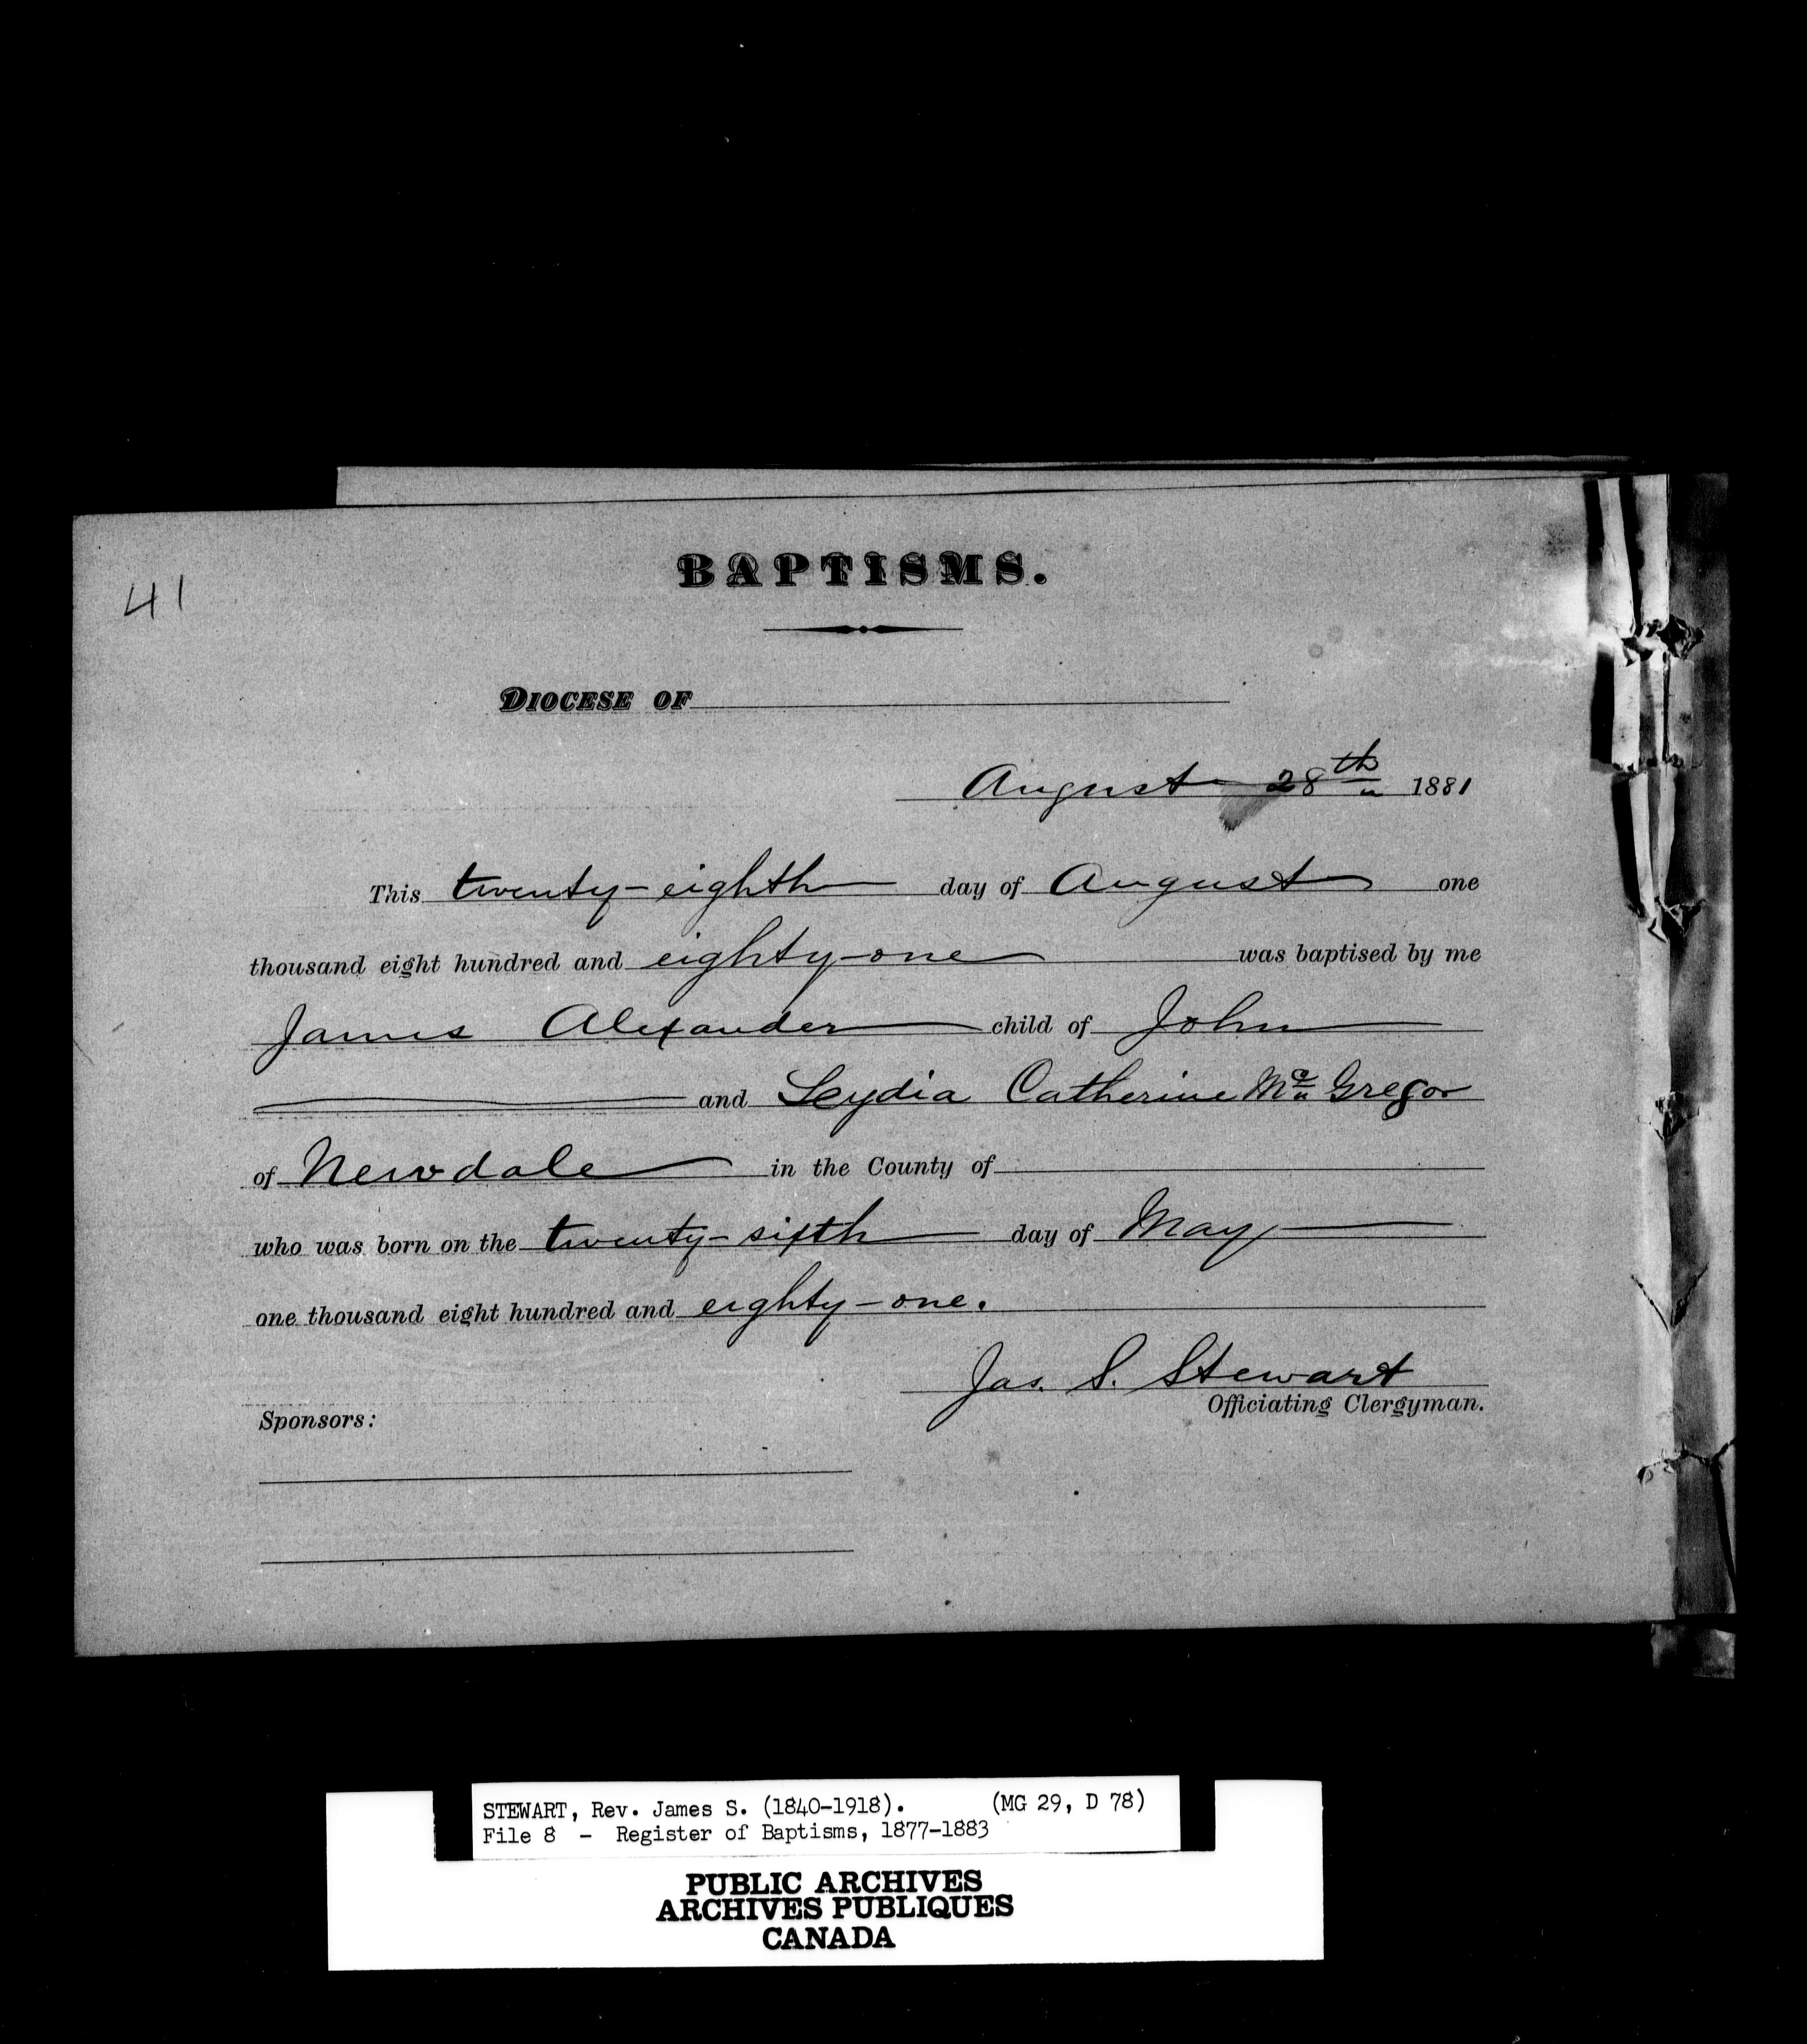 BAPTISMS.
41
DIOCESE OF
August 28th 1881
This twenty-eighth day of August one
thousand eight hundred and eighty-one was baptised by me
James Alexander child of John
and Leydia Catherine Mc Gregor
of Newdale in the County of
who was born on the twenty-sixth day of May
one thousand eight hundred and eighty-one.
Jas. S. Stewart
Officiating Clergyman.
Sponsors:
STEWART, Rev. James S. (1840-1918). (MG 29, D 78)
File 8 - Register of Baptisms, 1877-1883
PUBLIC ARCHIVES
ARCHIVES PUBLIQUES
CANADA